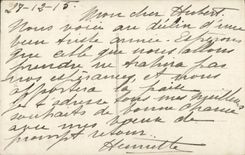 27-12-15
Mon cher Hubert.
Nous voici au déclin d'une
bien triste année. Espérons
que celle que nous allons
prendre ne trahira pas
nos espérances, et nous
apportera la paix
et t'adresse tous mes meilleurs
souhaits de bonne chance
avec mes vœux de
prompt retour.
Henriette